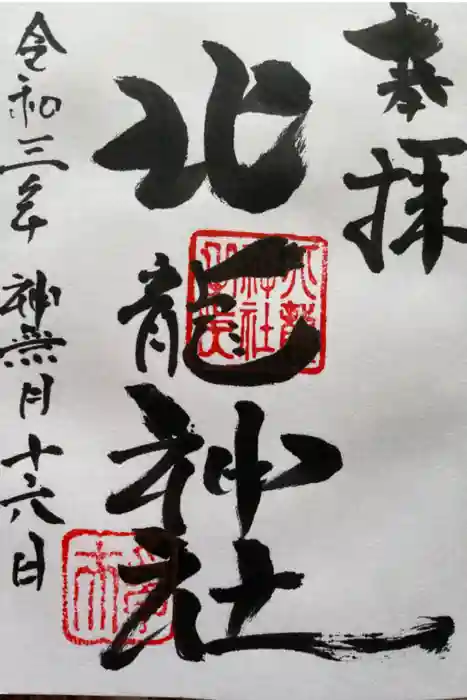 奉拝
北龍神社
令和三年 神無月十六日